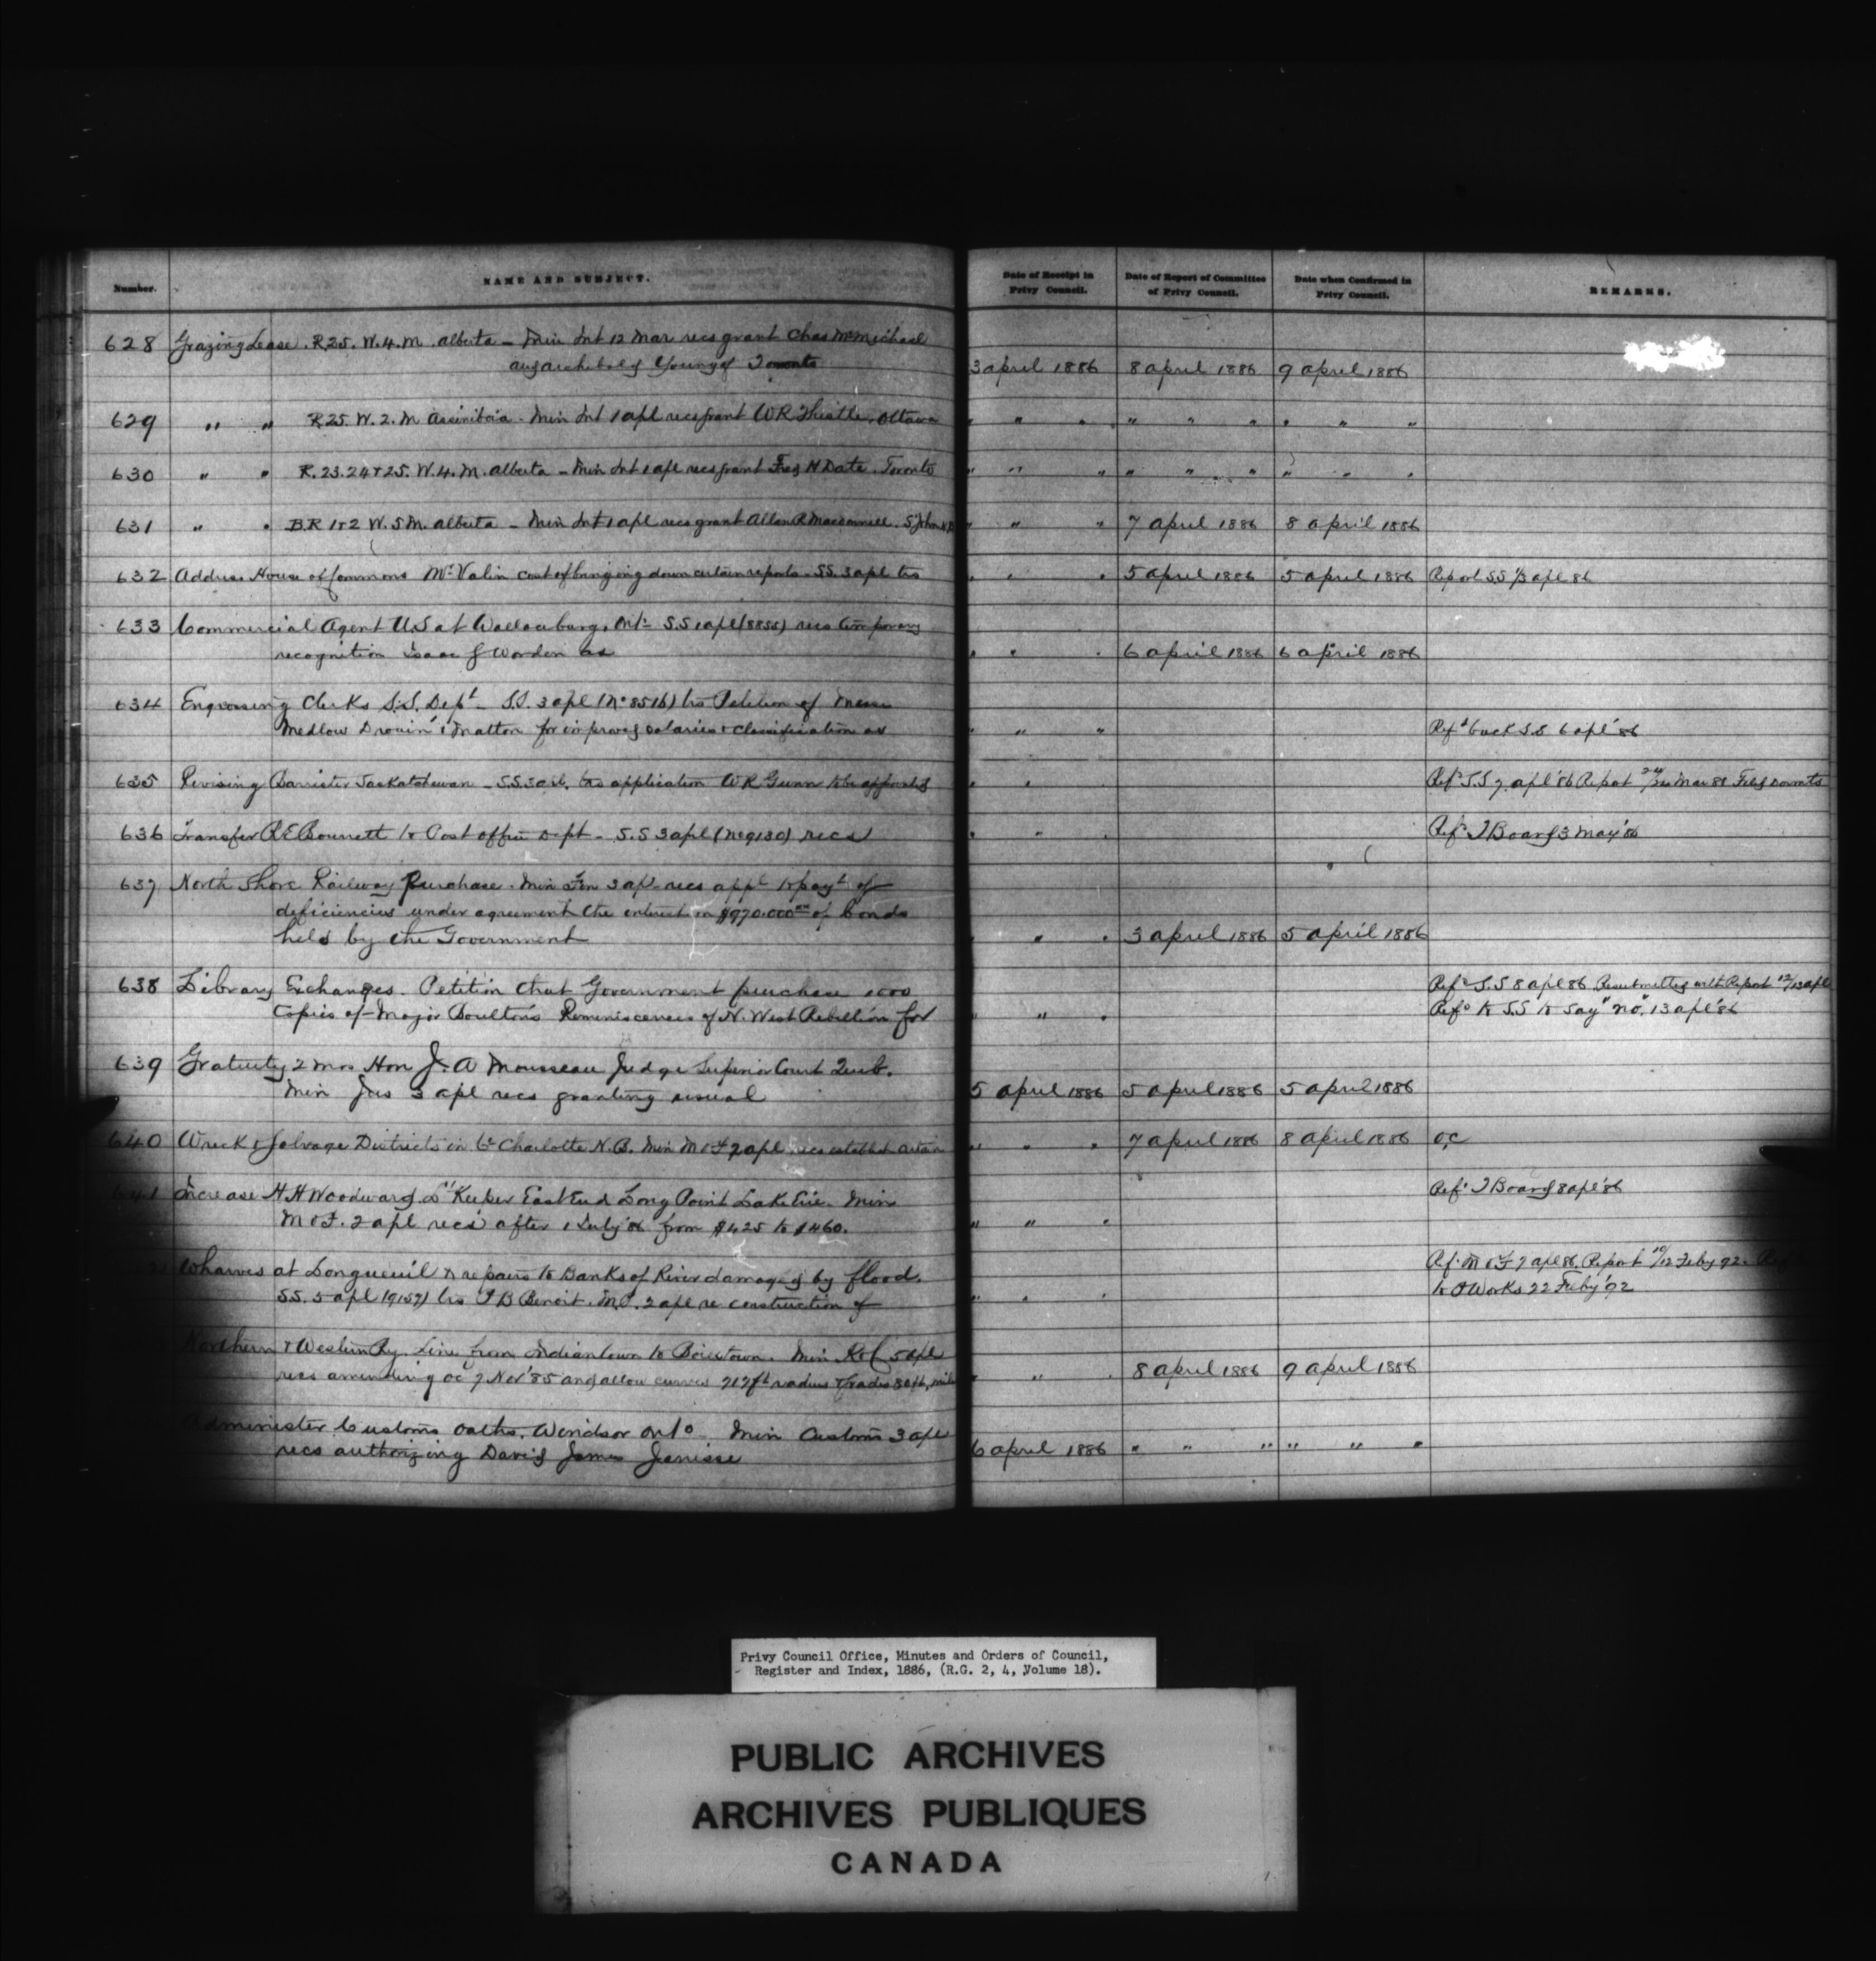 Number.
NAME AND SUBJECT.
Date of Receipt in Privy Council.
Date of Report of Committee of Privy Council.
Date when Confirmed in Privy Council.
REMARKS.
628 Grazing Lease. R25. W. 4. M. Alberta — Min Int 12 Mar recs grant Chas McMichael
and Archibald Young of Toronto 3 April 1886 8 April 1886 9 April 1886
629 " " R25. W. 2. M Assiniboia. Min Int 1 apl recs grant W R Thistle. Ottawa " " " " " " " " "
630 " " R. 23. 24 & 25. W. 4. M. Alberta — Min Int 1 apl recs grant Fred H Date. Toronto " " " " " " " " "
631 " " B.R 1 & 2 W. 5 M. Alberta — Min Int 1 apl recs grant Allan R Macdonnell. St John N B " " " 7 April 1886 8 April 1886
632 Address House of Commons Mr Valin cost of bringing down certain reports — S.S. 3 apl trs " " " 5 April 1886 5 April 1886 Report SS 1/3 apl 86
633 Commercial Agent U.S at Wallaceburg, Ont — S.S 1 apl (8855) recs temporary
recognition Isaac J Worden as " " " 6 April 1886 6 April 1886
634 Engrossing Clerks S.S. Dept — S.S. 3 apl (No 8516) trs Petition of Messrs
Medlow Drouin & Matton for improved salaries & classification as " " " Refd back S.S 6 apl '86
635 Revising Barrister Saskatchewan — S.S. 3 apl. trs application W R Gunn to be appointed " " " Refd S.S 7 apl '86 Report 24/ Mar 88 Filed
636 Transfer R E Bournett to Post office Dept — S.S 3 apl (No 9130) recs " " " Refd T Board 3 May '86
637 North Shore Railway Purchase. Min Fin 3 apl recs appl to payt of
deficiencies under agreement the interest on $970.000 of bonds
held by the Government " " " 3 April 1886 5 April 1886
638 Library Exchanges. Petition that Government purchase 1000 Refd S.S 8 apl 86. Resubmitted with Report 12/13 apl
Copies of Major Boulton's Reminiscences of N. West Rebellion for " " " Refd to S.S to say "no". 13 apl '86
639 Gratuity 2 mos Hon J. A Mousseau Judge Superior Court Queb.
Min Jus 3 apl recs granting usual 5 April 1886 5 April 1886 5 April 1886
640 Wreck & Salvage Districts in Co Charlotte N. B. Min M & F 2 apl recs establish certain " " " 7 April 1886 8 April 1886 O.C
641 Increase H H Woodward Lt Keeper East End Long Point Lake Erie. Min Refd T Board 8 apl '86
M & F. 2 apl recs after 1 July '86 from $425 to $460. " " "
Wharves at Longueuil & repairs to Banks of River damaged by flood. Refd M & F 7 apl 86. Report 10/12 Feby 92.
SS. 5 apl (9157) trs P B Benoit. M.P. 2 apl re construction of " " " to P Works 22 Feby '92
Northern & Western Ry. Line from Indiantown to Boiestown. Min R & C 5 apl
recs amending OC 7 Nov '85 and allow curves 717 ft radius & grades 80 ft, mile " " " 8 April 1886 9 April 1886
Administer Customs Oaths. Windsor Onto Min Customs 3 apl
recs authorizing David James Janisse 6 April 1886 " " " " " "
Privy Council Office, Minutes and Orders of Council,
Register and Index, 1886, (R.G. 2, 4, Volume 18).
PUBLIC ARCHIVES
ARCHIVES PUBLIQUES
CANADA